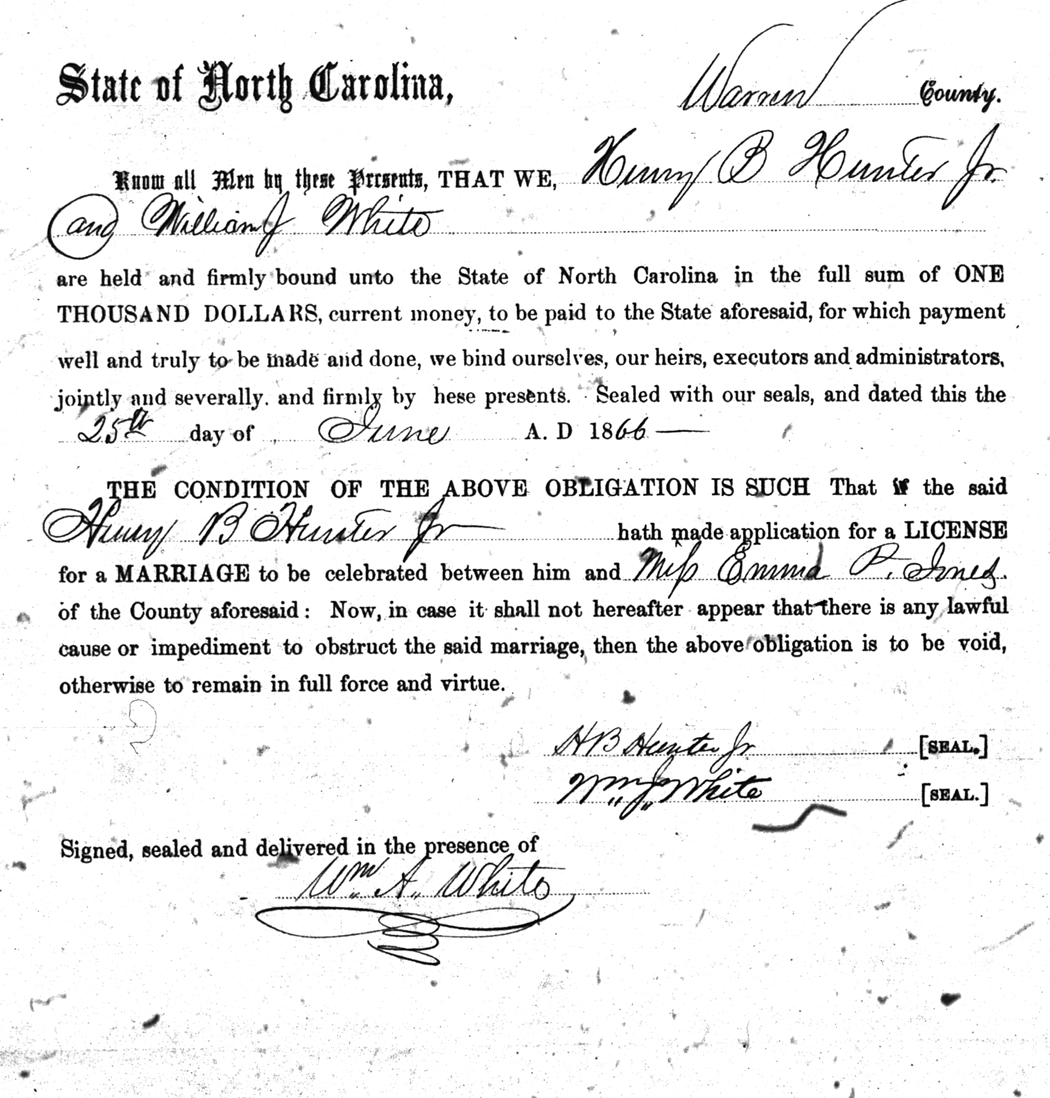 State of North Carolina, Warren County.
Know all Men by these Presents, THAT WE, Henry B Hunter Jr.
and William J White
are held and firmly bound unto the State of North Carolina in the full sum of ONE
THOUSAND DOLLARS, current money, to be paid to the State aforesaid, for which payment
well and truly to be made and done, we bind ourselves, our heirs, executors and administrators,
jointly and severally. and firmly by hese presents. Sealed with our seals, and dated this the
25th day of June A. D 1866 —
THE CONDITION OF THE ABOVE OBLIGATION IS SUCH That if the said
Henry B Hunter Jr hath made application for a LICENSE
for a MARRIAGE to be celebrated between him and Miss Emma P. Jones.
of the County aforesaid: Now, in case it shall not hereafter appear that there is any lawful
cause or impediment to obstruct the said marriage, then the above obligation is to be void,
otherwise to remain in full force and virtue.
H B Hunter Jr [SEAL.]
Wm J White [SEAL.]
Signed, sealed and delivered in the presence of
Wm A. White